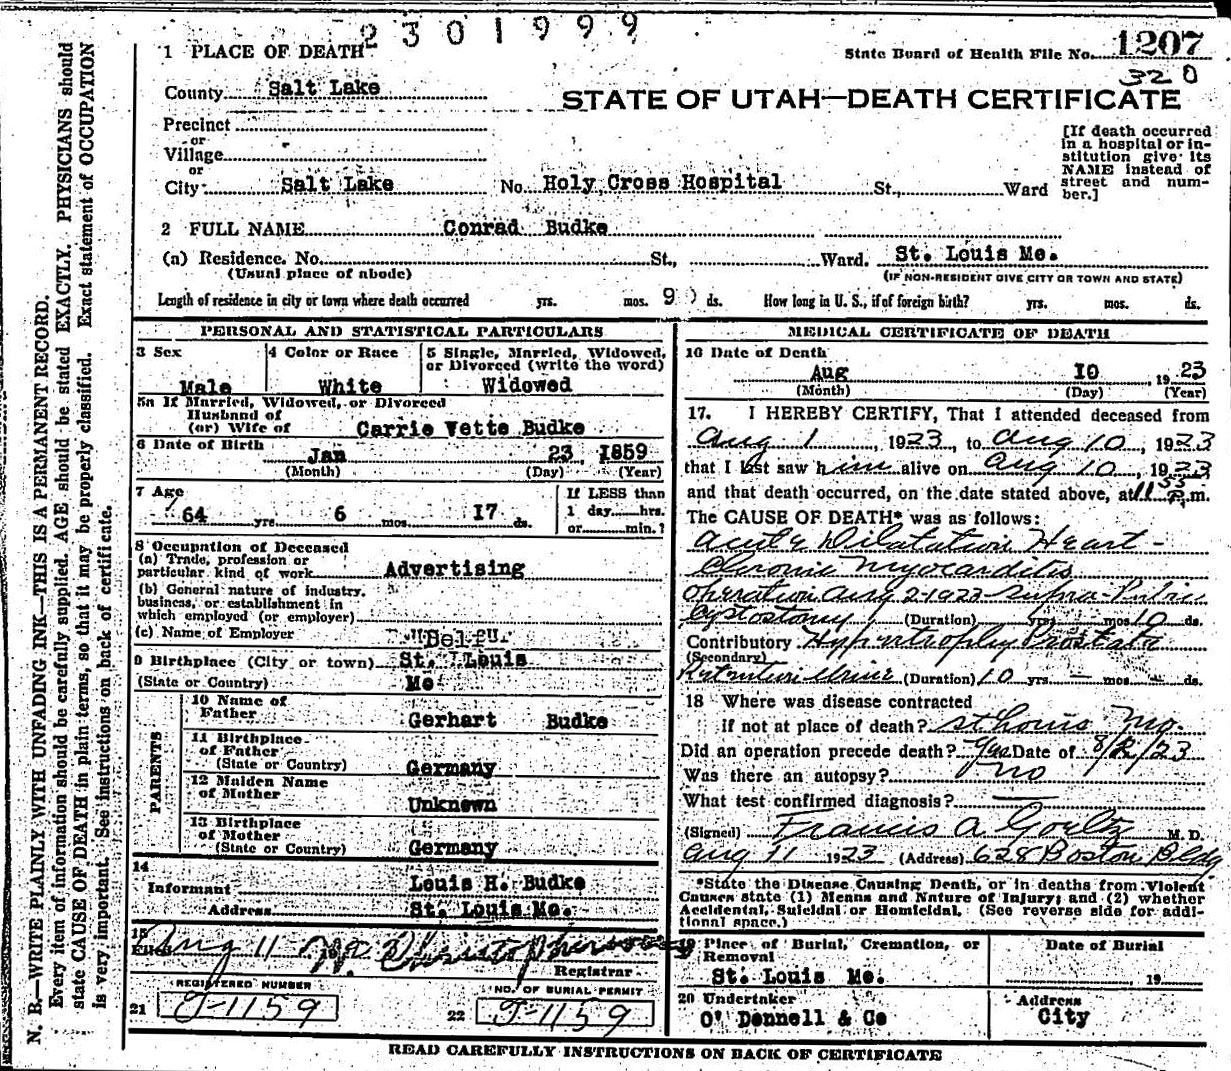 2301999
1 PLACE OF DEATH
State Board of Health File No. 1207
320
County Salt Lake
STATE OF UTAH—DEATH CERTIFICATE
Precinct
or
Village
or
City Salt Lake No. Holy Cross Hospital St., Ward
[If death occurred in a hospital or in-
stitution give its
NAME instead of
street and num-
ber.]
2 FULL NAME Conrad Budke
(a) Residence. No. St., Ward. St. Louis Mo.
(Usual place of abode) (IF NON-RESIDENT GIVE CITY OR TOWN AND STATE)
Length of residence in city or town where death occurred yrs. mos. 9 ds. How long in U. S., if of foreign birth? yrs. mos. ds.
PERSONAL AND STATISTICAL PARTICULARS
3 Sex
Male
4 Color or Race
White
5 Single, Married, Widowed,
or Divorced (write the word)
Widowed
5a If Married, Widowed, or Divorced
Husband of
(or) Wife of Carrie Vette Budke
6 Date of Birth
Jan 23, 1859
(Month) (Day) (Year)
7 Age
64 yrs. 6 mos. 17 ds.
If LESS than
1 day....hrs.
or....min.?
8 Occupation of Deceased
(a) Trade, profession or
particular kind of work Advertising
(b) General nature of industry,
business, or establishment in
which employed (or employer)
(c) Name of Employer "Self"
9 Birthplace (City or town) St. Louis
(State or Country) Mo
PARENTS
10 Name of
Father Gerhart Budke
11 Birthplace
of Father
(State or Country) Germany
12 Maiden Name
of Mother
Unknown
13 Birthplace
of Mother
(State or Country) Germany
14
Informant Louis H. Budke
Address St. Louis Mo.
15
Filed Aug 11 - Christopherson
Registrar
REGISTERED NUMBER
21 J-1159
NO. OF BURIAL PERMIT
22 J-1159
MEDICAL CERTIFICATE OF DEATH
16 Date of Death
Aug 10, 1923
(Month) (Day) (Year)
17. I HEREBY CERTIFY, That I attended deceased from
Aug 1, 1923, to Aug 10, 1923
that I last saw him alive on Aug 10, 1923
and that death occurred, on the date stated above, at 1155 P.m.
The CAUSE OF DEATH* was as follows:
Acute Dilatation Heart -
Chronic Myocarditis
operation Aug 2-1923 - Supra-Pubic
Cystostomy (Duration) yrs. mos. 10 ds.
Contributory Hypertrophy Prostate
(Secondary)
Retention Urine (Duration) 10 yrs. - mos. - ds.
18 Where was disease contracted
if not at place of death? St Louis Mo.
Did an operation precede death? Yes Date of 8/2/23
Was there an autopsy? no
What test confirmed diagnosis? —
(Signed) Francis A Goeltz M. D.
Aug 11 1923 (Address) 628 Boston Bldg
*State the Disease Causing Death, or in deaths from Violent
Causes state (1) Means and Nature of Injury; and (2) whether
Accidental, Suicidal or Homicidal. (See reverse side for addi-
tional space.)
19 Place of Burial, Cremation, or
Removal
St. Louis Mo.
Date of Burial
19
20 Undertaker
O' Donnell & Co
Address
City
READ CAREFULLY INSTRUCTIONS ON BACK OF CERTIFICATE
N. B.—WRITE PLAINLY WITH UNFADING INK—THIS IS A PERMANENT RECORD.
Every item of information should be carefully supplied. AGE should be stated EXACTLY. PHYSICIANS should
state CAUSE OF DEATH in plain terms, so that it may be properly classified. Exact statement of OCCUPATION
is very important. See instructions on back of certificate.